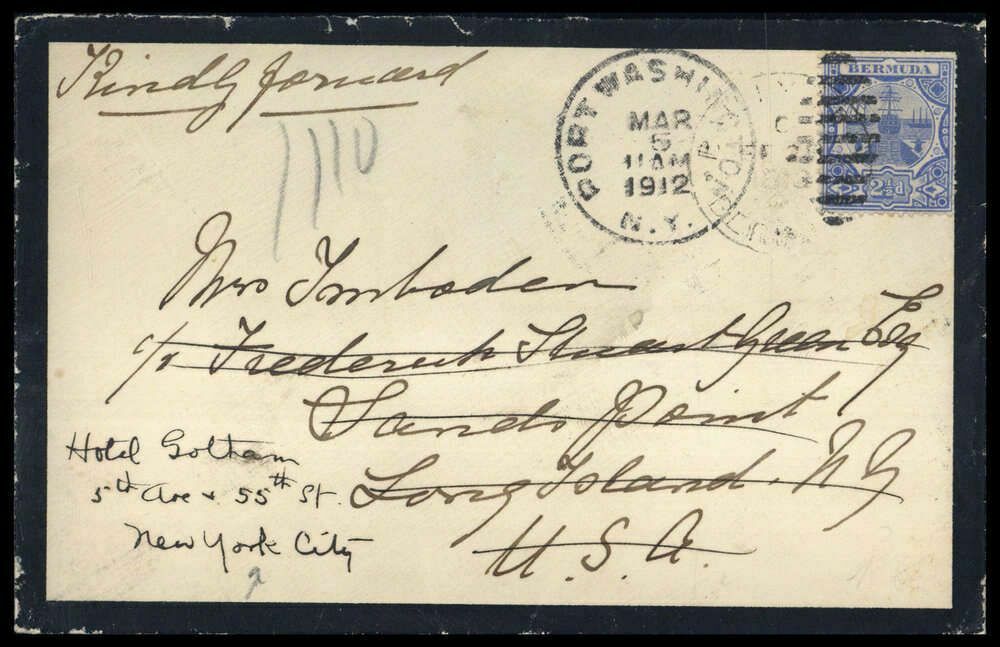 Kindly forward
1110
PORT WASHINGTON
MAR
5
11 AM
1912
N.Y.
BERMUDA
2½d
Mrs Imboden
c/o Frederick Stuart Green Esq
Sands Point
Long Island. N Y
U. S. A.
Hotel Gotham
5th Ave & 55th St.
New York City